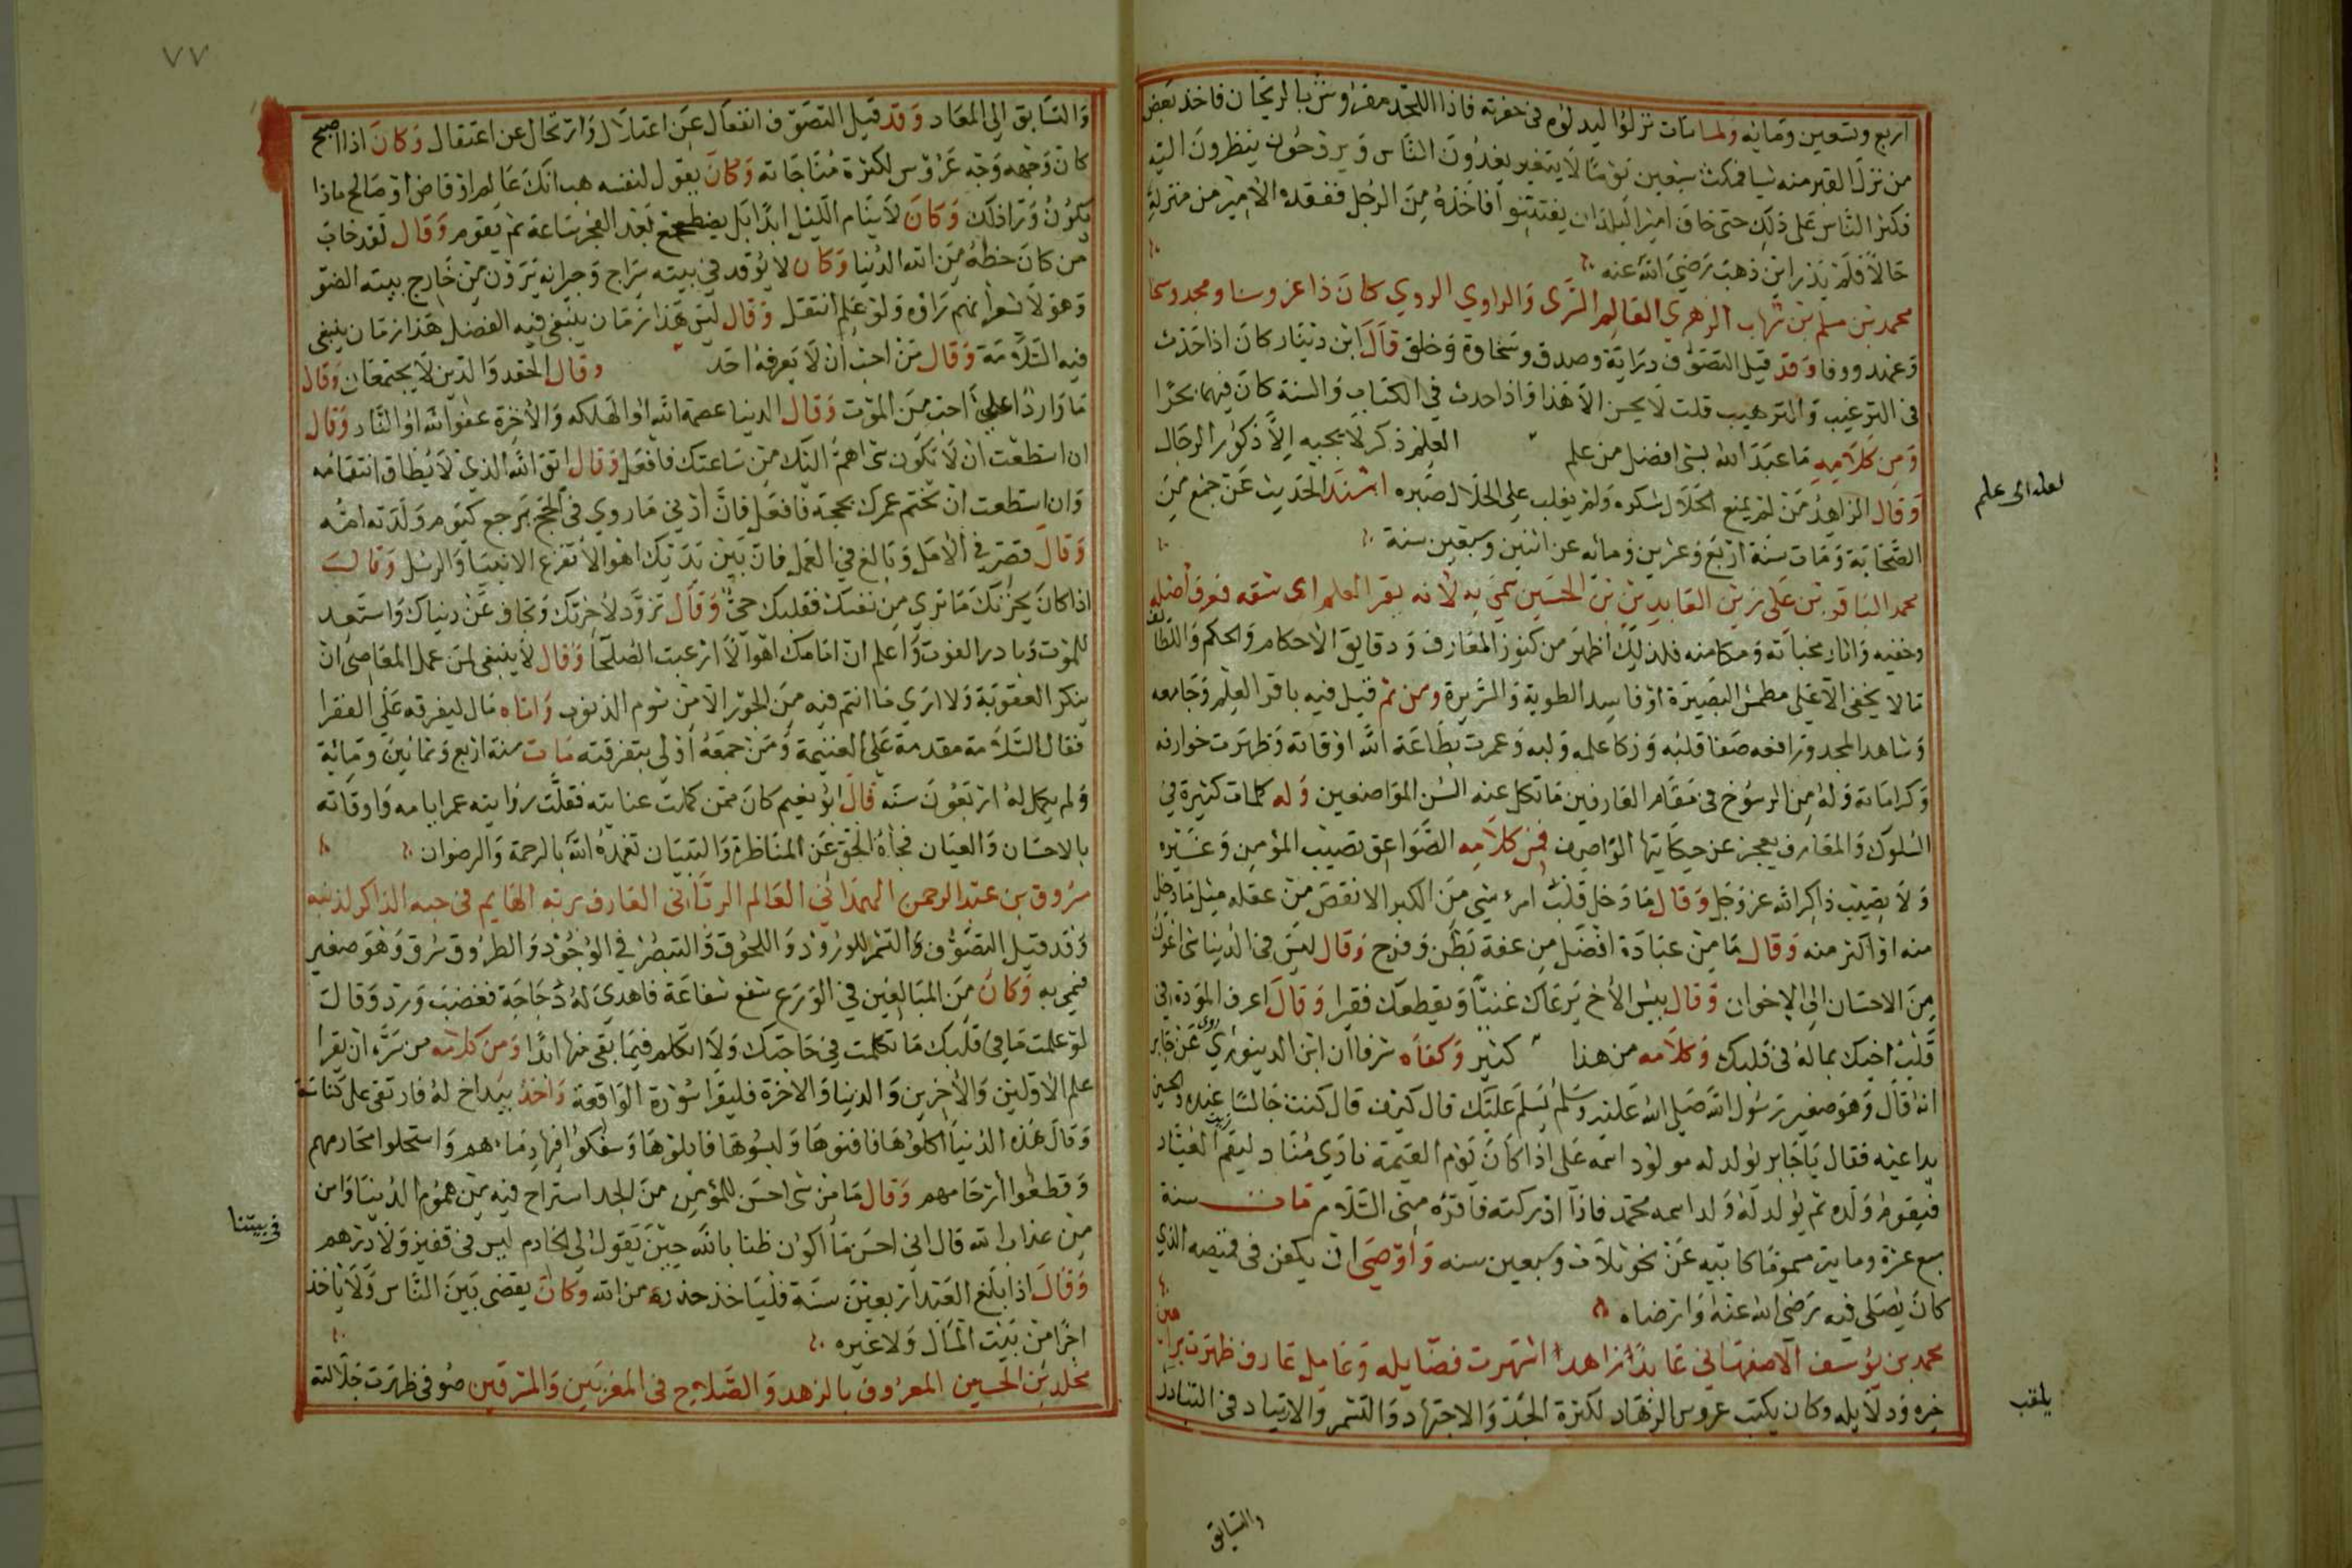 اربع وتسعين ومايه ولما مات نزلوا ليدلوه فى حفرته فاذا اللحد مفروش بالريحان فاخذ بعض
من نزل القبر منه شيا فمكث سبعين يوما لا يتغير يغدون الناس ويروحون ينظرون اليه
فكثر الناس على ذلك حتى خاف امير البلد ان يفتتنوا فاخذه من الرجل ففقده الامير من منزله
حالا فلم يدر اين ذهب رضي الله عنه
محمد بن مسلم بن شهاب الزهري العالم السرى والراوي الروي كان ذا عز وسنا ومجد وسخا
وعهد ووفا وقد قيل التصوف دراية وصدق وسخاوة وخلق قال ابن دينار كان اذا حدث
فى الترغيب والترهيب قلت لا يحسن الا هذا واذا حدث في الكتاب والسنة كان فيهما بحرا
ومن كلامه ما عبد الله بشى افضل من علم العلم ذكر لا يحبه الا ذكور الرجال
لعله اى علم
وقال الزاهد من لم يمنع الحلال شكره ولم يغلب على الحلال صبره اسند الحديث عن جمع من
الصحابة ومات سنة اربع وعشرين ومائه عن اثنين وسبعين سنة
محمد الباقر بن على زين العابدين بن الحسين سمي به لانه بقر العلم اى شقه فعرف اصله
وخفيه واثار مخباته ومكامنه فلذلك اظهر من كنوز المعارف ودقايق الاحكام والحكم واللطائف
ما لا يخفى الا على مطمس البصيرة او فاسد الطوية والسريرة ومن ثم قيل فيه باقر العلم وجامعه
وشاهد المجد ورافعه صفا قلبه وزكا علمه ولبه وعمرت بطاعة الله اوقاته وظهرت خوارقه
وكراماته وله من الرسوخ فى مقام العارفين ما تكل عنه السن الواصفين وله كلمات كثيرة في
السلوك والمعارف يعجز عن حكايتها الواصف فمن كلامه الصواعق تصيب المؤمن وغيره
ولا تصيب ذاكر الله عز وجل وقال ما دخل قلب امرء شي من الكبر الا نقص من عقله مثل ما دخل
منه او اكثر منه وقال ما من عبادة افضل من عفة بطن وفرج وقال ليس فى الدنيا شى اعون
من الاحسان الى الاخوان وقال بيس الاخ يرعاك غنيا ويقطعك فقيرا وقال اعرف المودة في
قلب اخيك بماله فى قلبك وكلامه من هذا كثير وكفاه شرفا ان ابن الدينوري روى عن جابر
انه قال وهو صغير رسول الله صلى الله عليه وسلم يسلم عليك قال كيف قال كنت جالسا عنده والحسين
يداعبه فقال يا جابر يولد له مولود اسمه على اذا كان يوم القيمة نادي مناد ليقم سيد العباد
فيقوم ولده ثم يولد له ولد اسمه محمد فاذا ادركته فاقره منى السلام مات سنة
سبع عشرة وماية مسموما كابيه عن نحو ثلاث وسبعين سنه واوصى ان يكفن فى قميصه الذي
كان يصلى فيه رضى الله عنه وارضاه
محمد بن يوسف الاصفهاني عابدا زاهدا اشتهرت فضايله وعامل عارف ظهرت براهين
خيره ودلايله وكان يكتب عروس الزهاد لكثرة الجد والاجتهاد والتشمر والارتياد فى التبادر
يلقب
والتسابق
٧٧
والتسابق الى المعاد وقد قيل التصوف انفعال عن اعتلال وارتحال عن اعتقال وكان اذا اصبح
كان وجهه وجه عروس لكثرة مناجاته وكان يقول لنفسه هب انك عالم او قاض او صالح ماذا
يكون ورا ذلك وكان لا ينام الليل ابدا بل يضطجع بعد الفجر ساعة ثم يقوم وقال لقد خاب
من كان حظه من الله الدنيا وكان لا يوقد في بيته سراج وجيرانه يرون من خارج بيته الضو
وهو لا يشعر انهم راوه ولو علم انتقل وقال ليس هذا زمان ينبغي فيه الفضل هذا زمان ينبغى
فيه السلامة وقال من احب ان لا يعرفه احد وقال الحقد والدين لا يجتمعان وقال
ما وارد اعلي احب من الموت وقال الدنيا عصمة الله او الهلكه والاخرة عفو الله او النار وقال
ان استطعت ان لا تكون شى اهم اليك من ساعتك فافعل وقال اتق الله الذي لا يطاق انتقامه
وان استطعت ان تختم عمرك بحجة فافعل فان ادني ما روي فى الحج يرجع كيوم ولدته امه
وقال قصر في الامل وبالغ في العمل فان بين يديك اهوالا تفزع الانبيا والرسل وقال
اذا كان يحزنك ما ترى من نفسك فقلبك حي وقال تزود لاخرتك وتجاف عن دنياك واستعد
للموت وبادر الفوت واعلم ان امامك اهوالا ارعبت الصلحا وقال لا ينبغى لمن عمل المعاصى ان
ينكر العقوبة ولا ارى ما انتم فيه من الجور الا من شوم الذنوب واتاه مال ليفرقه على الفقرا
فقال السلامة مقدمة على الغنيمة ومن جمعه اولى بتفرقته مات سنة اربع وثمانين وماية
ولم يكمل له اربعون سنه قال ابو نعيم كان ممن كملت عنايته فقلت روايته عمر ايامه واوقاته
بالاحسان والعيان فجاه الحق عن المناظرة والتبيان تغمده الله بالرحمة والرضوان
مسروق بن عبد الرحمن الهمداني العالم الربانى العارف بربه الهايم فى حبه الذاكر لذنبه
وقد قيل التصوف والتشمر للورود واللحوق والتبصر في الوجود والطروق سرق وهو صغير
فسمي به وكان من المبالغين في الورع شفع شفاعة فاهدي له دجاجة فغضب ورد وقال
لو علمت ما في قلبك ما تكلمت في حاجتك ولا اتكلم فيما بقى منها ابدا ومن كلامه من سره ان يقرا
علم الاولين والاخرين والدنيا والاخرة فليقرا سورة الواقعة واخذ بيد اخ له فارتقى على كناسة
وقال هذه الدنيا اكلوها فافنوها ولبسوها فابلوها وسفكوا فيها دماءهم واستحلوا محارمهم
وقطعوا ارحامهم وقال ما من شى احسن للمؤمن من لحد استراح فيه من هموم الدنيا وامن
من عذاب الله قال انى احسن ما اكون ظنا بالله حين يقول لى الخادم ليس فى قفيز ولا درهم
فى بيتنا
وقال اذا بلغ العبد اربعين سنة فلياخذ حذره من الله وكان يقضى بين الناس ولا ياخذ
اجرا من بيت المال ولا غيره
مخلد بن الحسين المعروف بالزهد والصلاح فى المغربين والمشرقين صوفى ظهرت جلالته